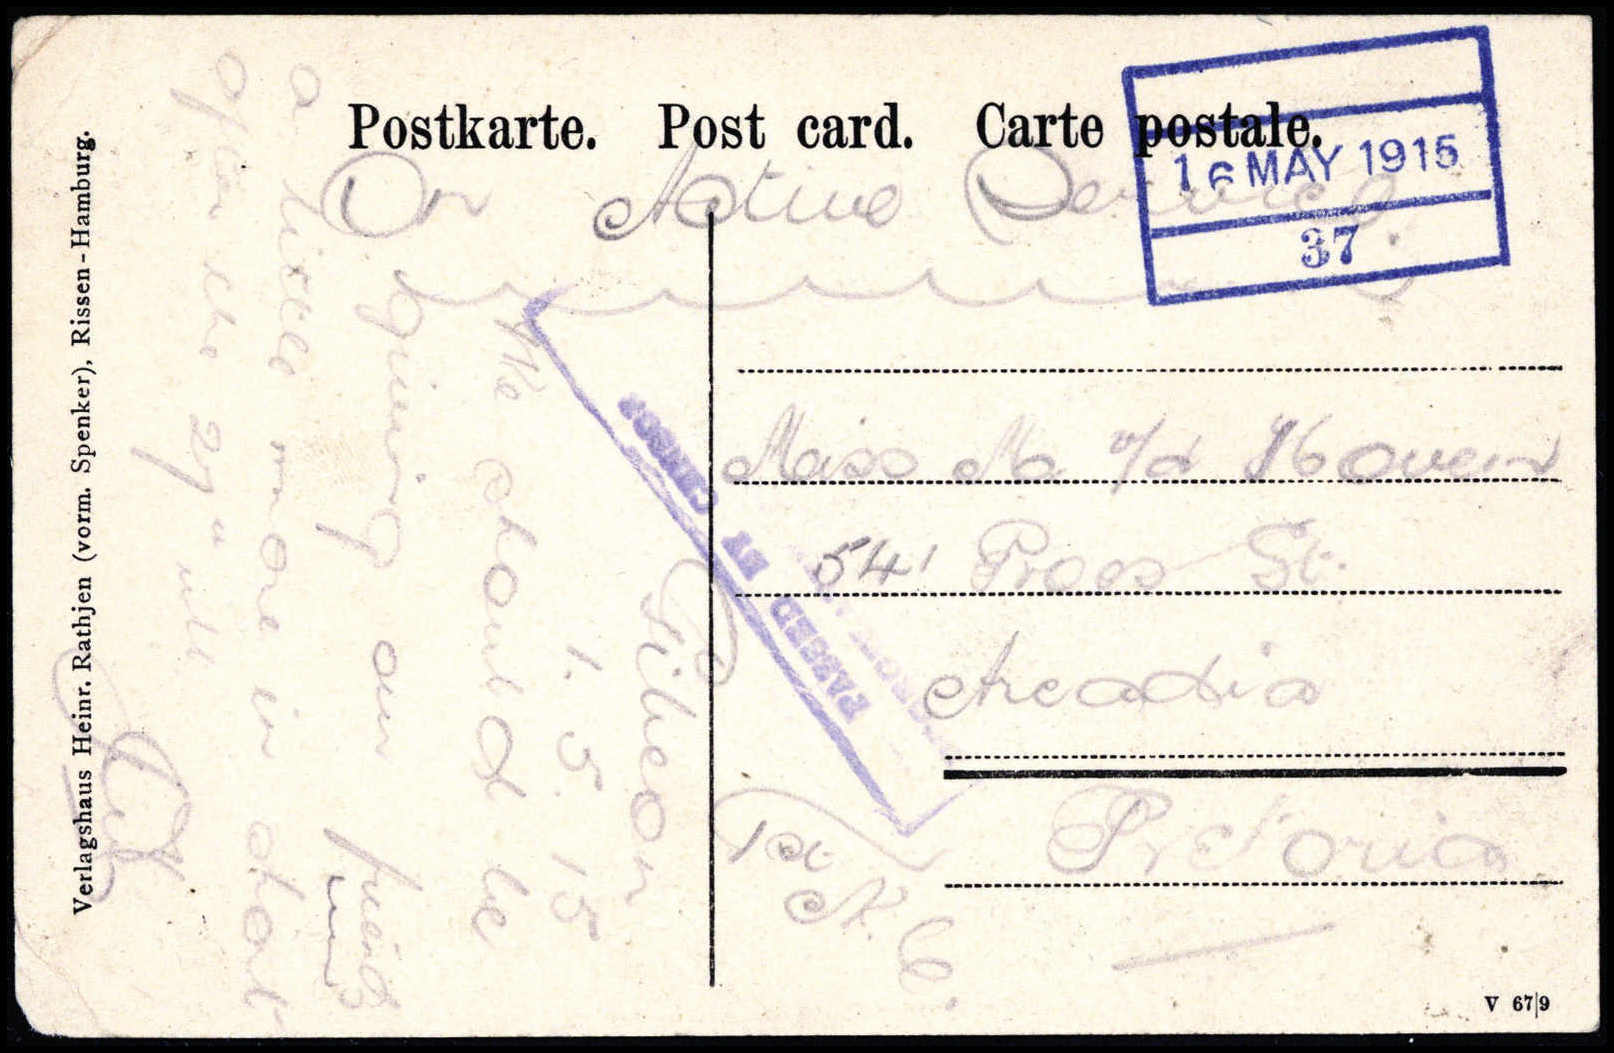 Postkarte. Post card. Carte postale.
On Active Service.
16 MAY 1915
37
Miss M v/d Hoven
541 Proes St.
Arcadia
Pretoria
PASSED BY CENSOR
Gibeon
1.5.15
We should be
giving our friend
a little more in
after the
Verlagshaus Heinr. Rathjen (vorm. Spenker), Rissen-Hamburg.
V 67|9